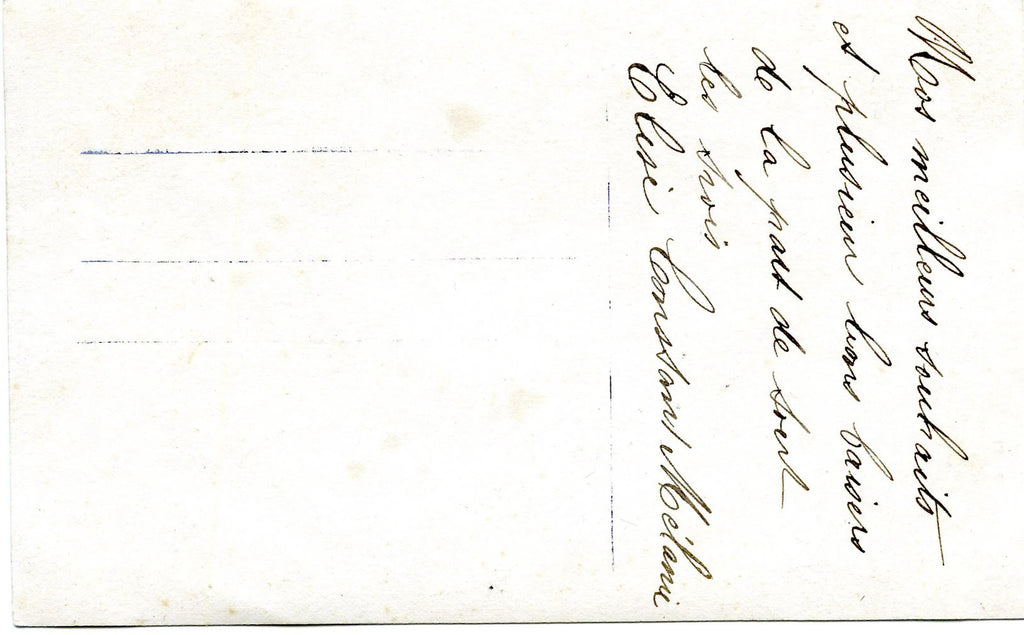 Nos meilleurs souhaits
et plusieur bons baisers
de la part de tout
les trois
Elise Constant Mélanie